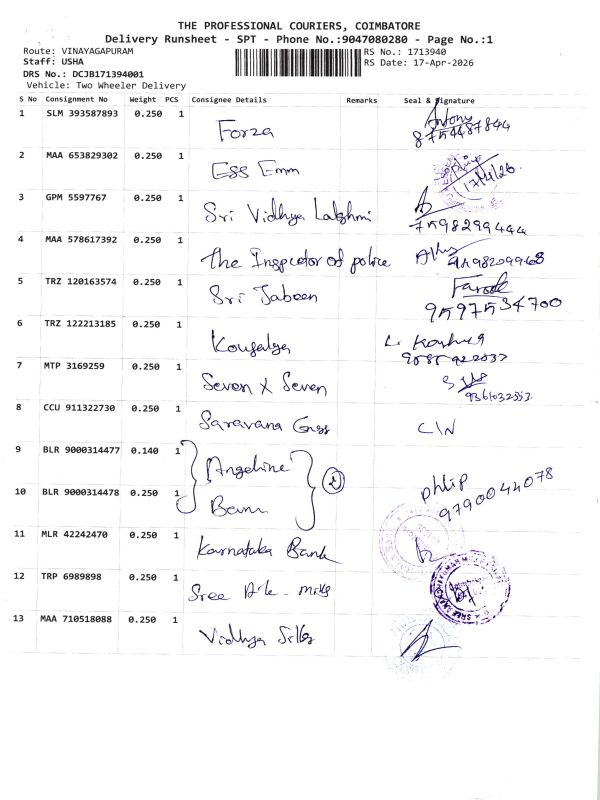 THE PROFESSIONAL COURIERS, COIMBATORE
Delivery Runsheet - SPT - Phone No.:9047080280 - Page No.:1
Route: VINAYAGAPURAM RS No.: 1713940
Staff: USHA RS Date: 17-Apr-2026
DRS No.: DCJB171394001
Vehicle: Two Wheeler Delivery
S No Consignment No Weight PCS Consignee Details Remarks Seal & Signature
1 SLM 393587893 0.250 1 Forza Antony
8754487844
2 MAA 653829302 0.250 1 Ess Emm 17/4/26
3 GPM 5597767 0.250 1 Sri Vidhya Lakshmi
7598299444
4 MAA 578617392 0.250 1 The Inspector of police
5 TRZ 120163574 0.250 1 Sri Jabeen Farook
9597534700
6 TRZ 122213185 0.250 1 Kousalya
7 MTP 3169259 0.250 1 Seven X Seven
8 CCU 911322730 0.250 1 Saravana
9 BLR 9000314477 0.140 1 Angeline
10 BLR 9000314478 0.250 1 2 philip
9790044078
11 MLR 42242470 0.250 1 Karnataka Bank
12 TRP 6989898 0.250 1 Sree mills
13 MAA 710518088 0.250 1 Vidhya Silks